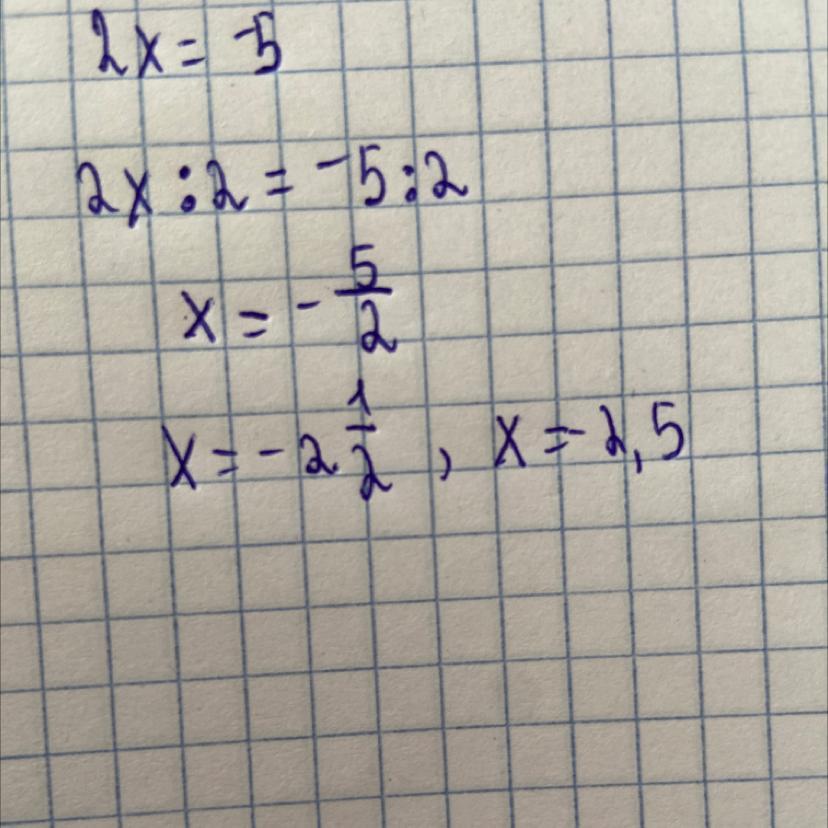 2x = -5
2x : 2 = -5 : 2
x = - 5/2
x = - 2 1/2 , x = - 2,5